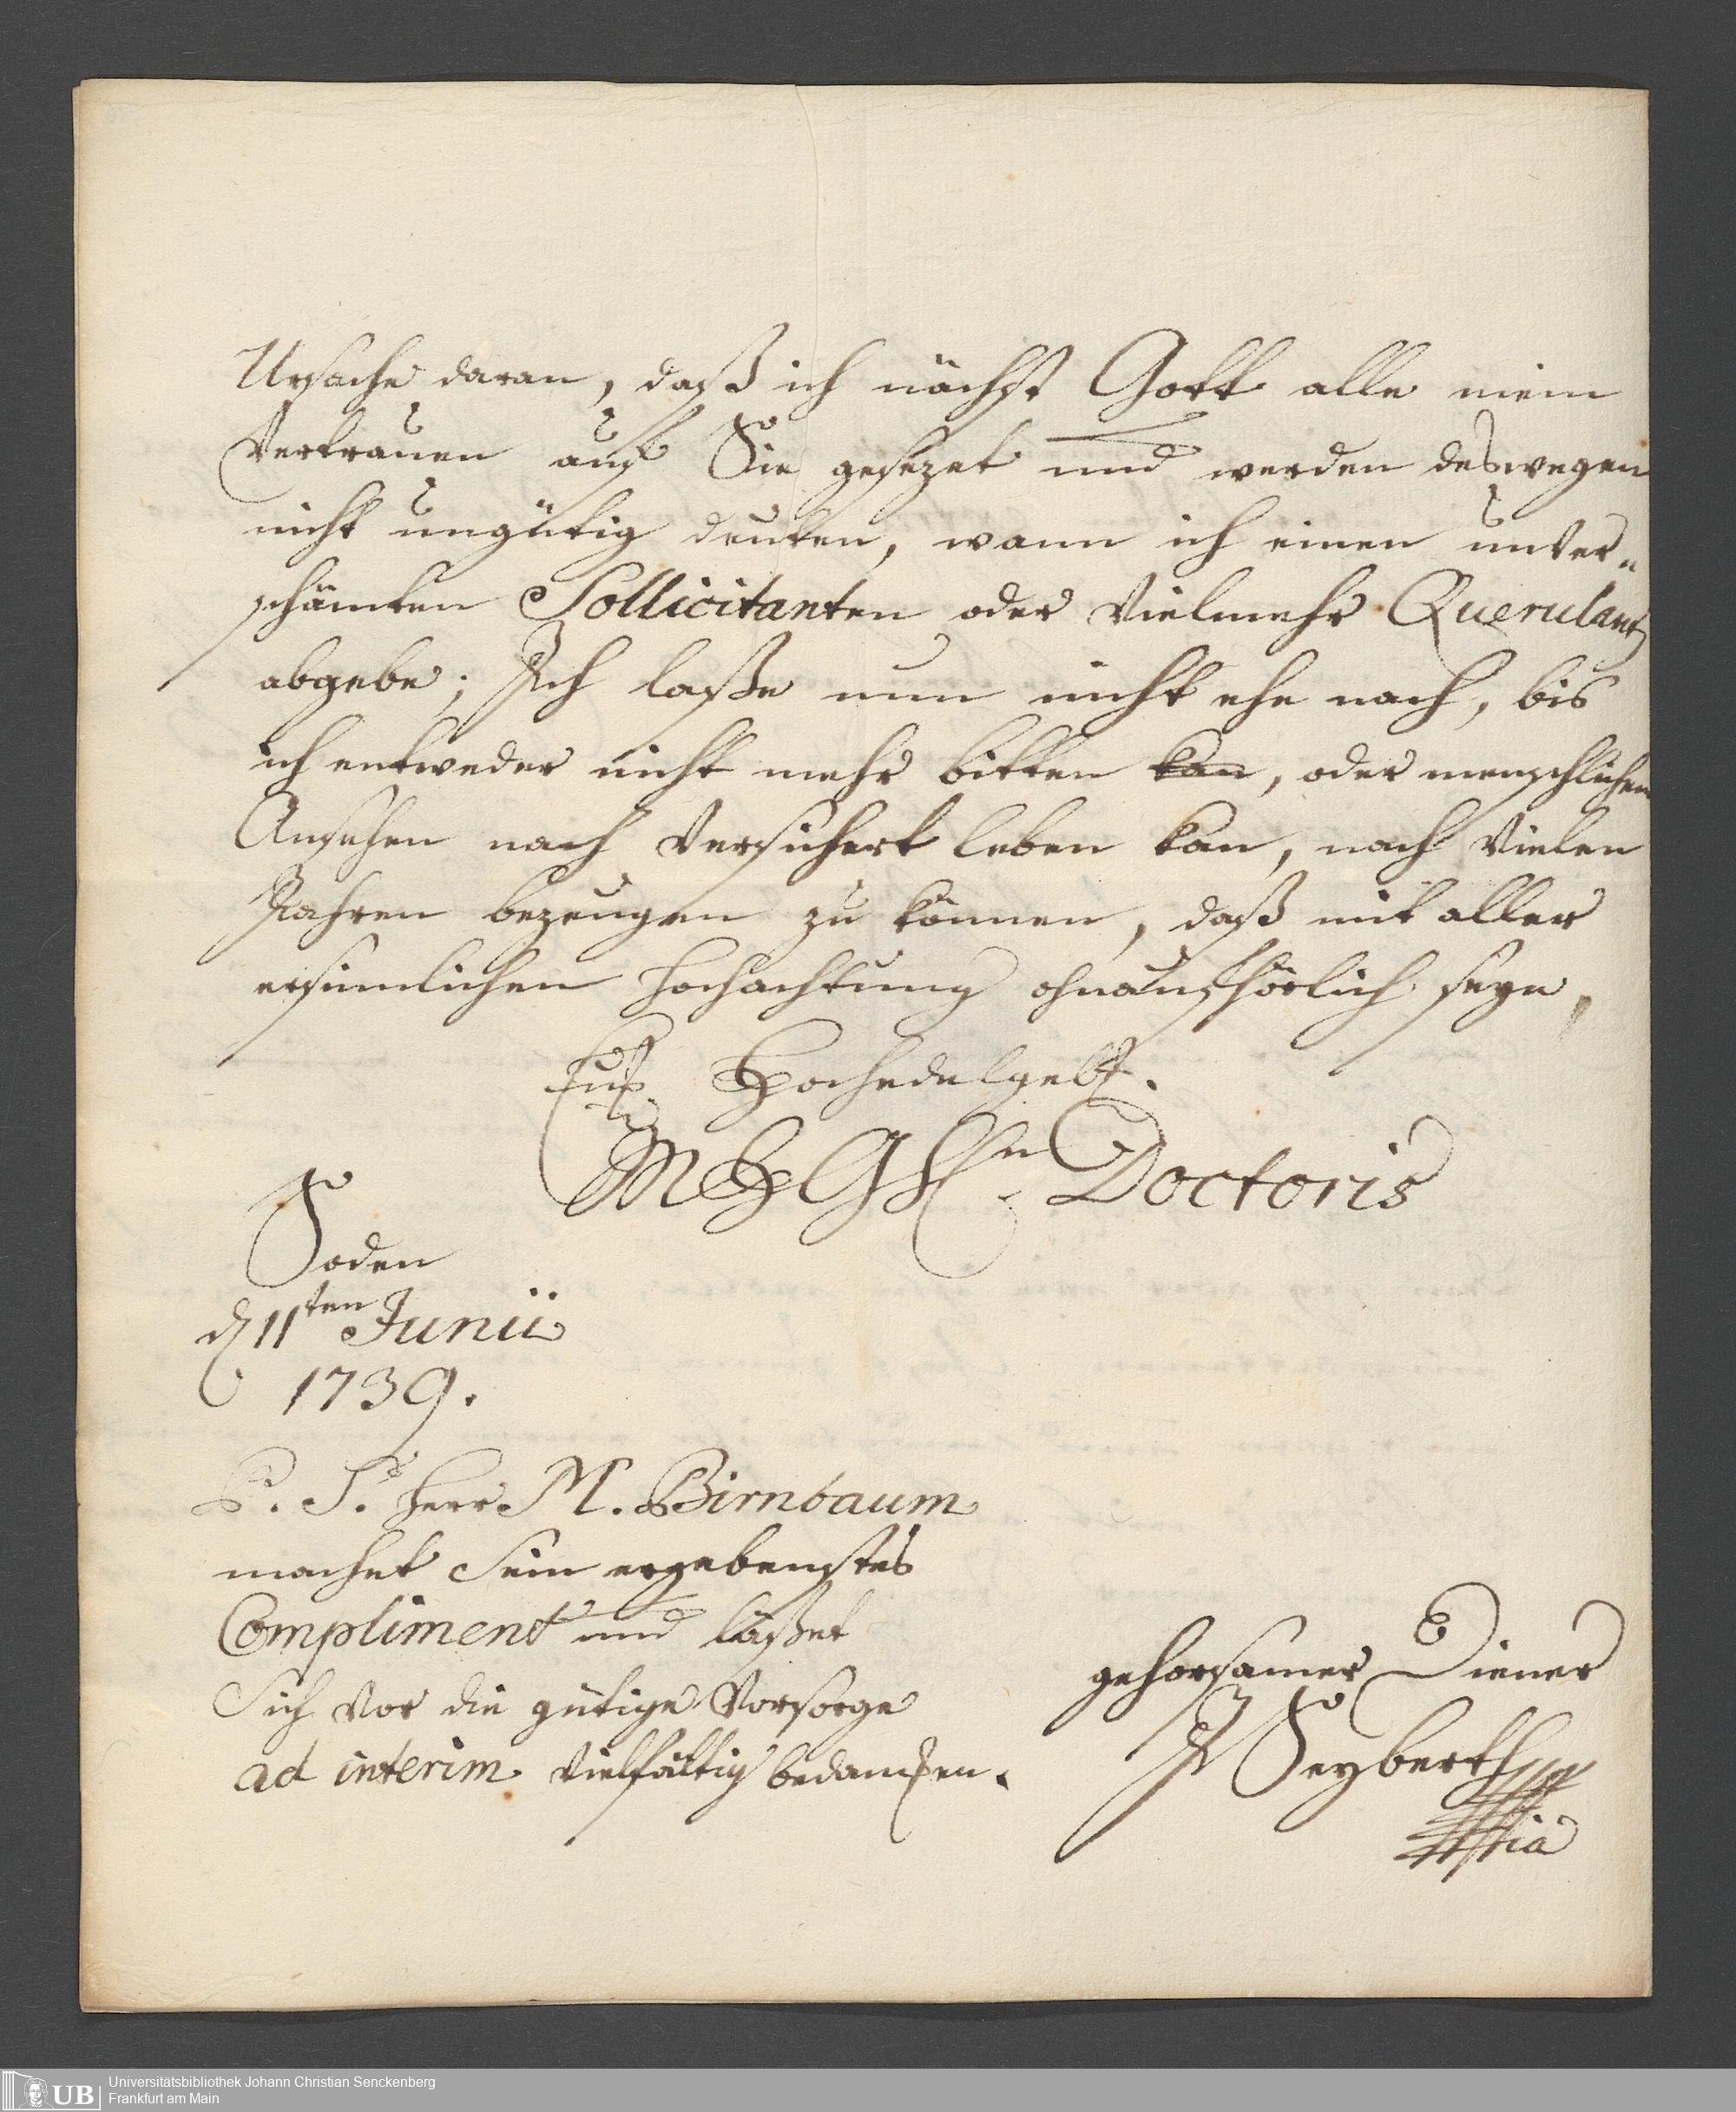 Ursache daran, daß ich nächst Gott alle mein
Vertrauen auf Sie gesezet und werden deswegen
nicht ungütig deuten, wann ich einen unver„
schämten Sollicitanten oder vielmehr Querulant
abgebe; Ich laße nun nicht ehe nach, bis
ich entweder nicht mehr bitten kan, oder menschlichen
Ansehen nach versichert leben kan, nach vielen
Jahren bezeugen zu können, daß mit aller
ersinnlichen Hochachtung ohnaufhörlich seye,
Ew. Hochedelgeb.
MHGHn. Doctoris
Soden
d 11ten Junii
1739.
P. S. Herr M. Birnbaum
machet Sein ergebenstes
Compliment und läßet
Sich vor die gütige Vorsorge
ad interim vielfältig bedancken.
gehorsamer Diener
J Seyberth
Universitätsbibliothek Johann Christian Senckenberg
Frankfurt am Main
UB